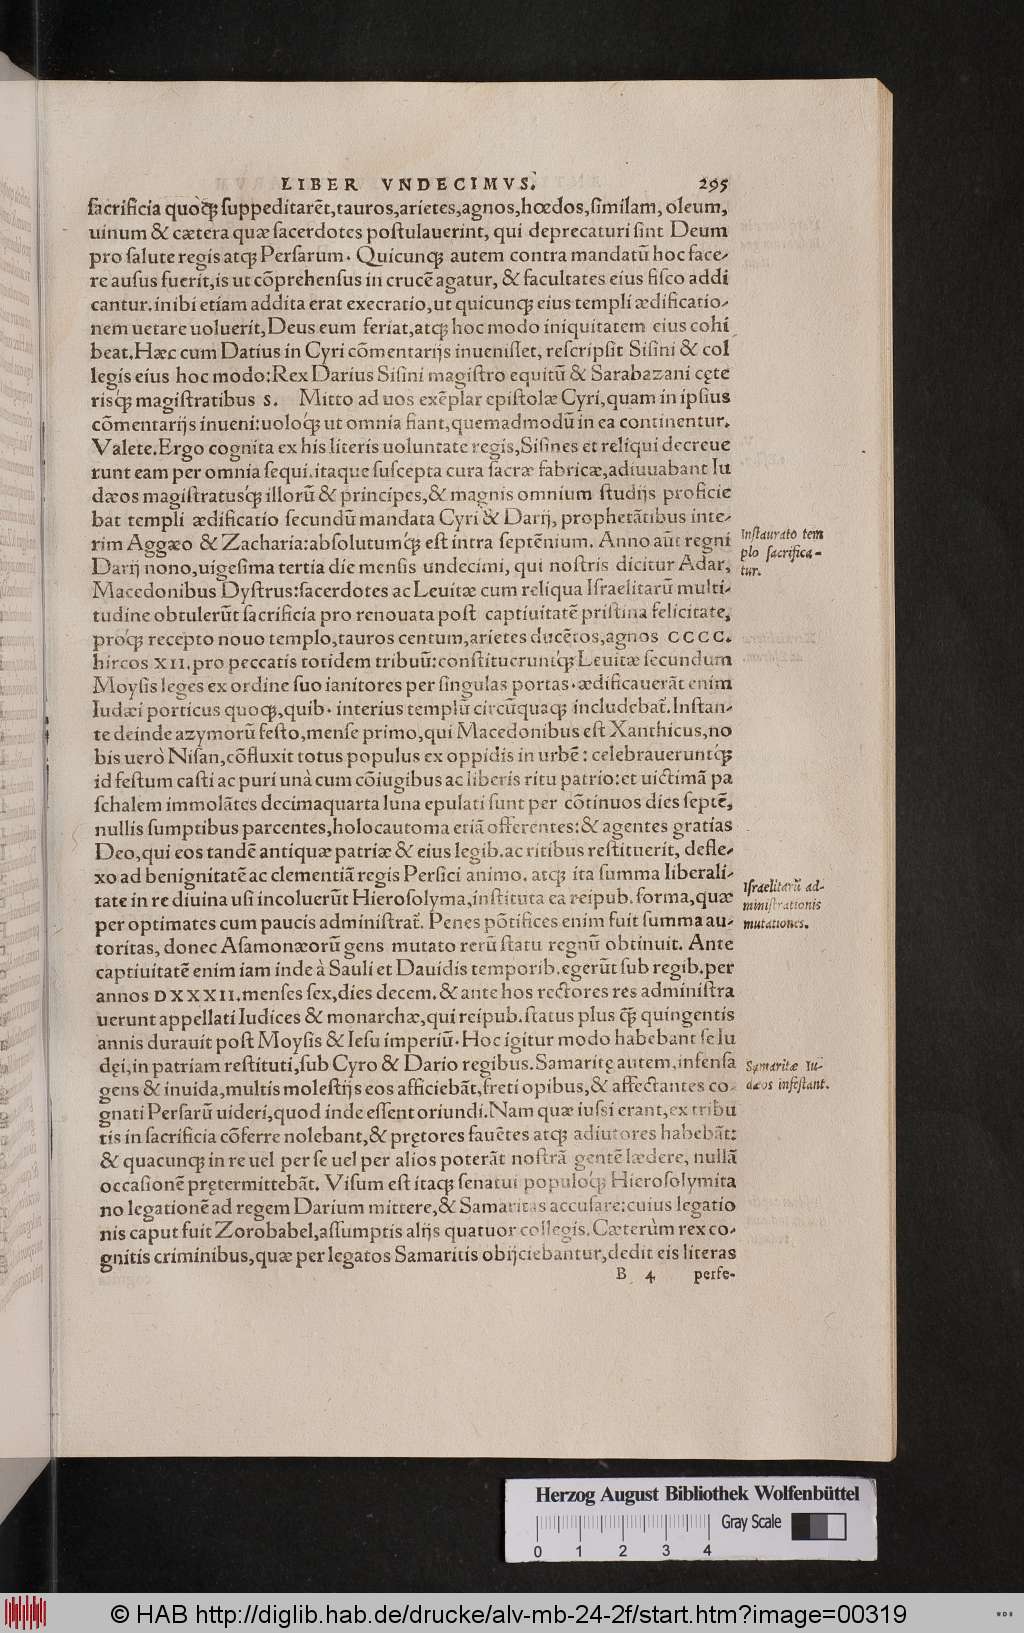 LIBER VNDECIMVS. 295
sacrificia quoq́ꝫ suppeditarēt,tauros,arietes,agnos,hœdos,similam, oleum,
uinum & cætera quæ sacerdotes postulauerint, qui deprecaturi sint Deum
pro salute regis atqꝫ Persarum. Quicunqꝫ autem contra mandatū hoc face-
re ausus fuerit,is ut cōprehensus in crucē agatur, & facultates eius fisco addi
cantur.inibi etiam addita erat execratio,ut quicunqꝫ eius templi ædificatio-
nem uetare uoluerit,Deus eum feriat,atqꝫ hoc modo iniquitatem eius cohi
beat.Hæc cum Datius in Cyri cōmentarijs inuenisset, rescripsit Sisini & col
legis eius hoc modo:Rex Darius Sisini magistro equitū & Sarabazani cęte
risq́ꝫ magistratibus s. Mitto ad uos exēplar epistolæ Cyri,quam in ipsius
cōmentarijs inueni:uoloq́ꝫ ut omnia fiant,quemadmodū in ea continentur.
Valete.Ergo cognita ex his literis uoluntate regis,Sisines et reliqui decreue
runt eam per omnia sequi.itaque suscepta cura sacræ fabricæ,adiuuabant Iu
dæos magistratusq́ꝫ illorū & principes,& magnis omnium studijs proficie
bat templi ædificatio secundū mandata Cyri & Darij, prophetātibus inte-
rim Aggæo & Zacharia:absolutumq́ꝫ est intra septēnium. Anno aūt regni
Darij nono,uigesima tertia die mensis undecimi, qui nostris dicitur Adar,
Macedonibus Dystrus:sacerdotes ac Leuitæ cum reliqua Israelitarū multi-
tudine obtulerūt sacrificia pro renouata post captiuitatē pristina felicitate,
proq́ꝫ recepto nouo templo,tauros centum,arietes ducētos,agnos CCCC.
hircos XII.pro peccatis totidem tribuū:constitueruntq́ꝫ Leuitæ secundum
Moysis leges ex ordine suo ianitores per singulas portas.ædificauerāt enim
Iudæi porticus quoqꝫ,quib. interius templū circūquaqꝫ includebat̄.Instan-
te deinde azymorū festo,mense primo,qui Macedonibus est Xanthicus,no
bis uerò Nisan,cōfluxit totus populus ex oppidis in urbē: celebraueruntq́ꝫ
id festum casti ac puri unà cum cōiugibus ac liberis ritu patrio:et uictimā pa
schalem immolātes decimaquarta luna epulati sunt per cōtinuos dies septē,
nullis sumptibus parcentes,holocautoma etiā offerentes:& agentes gratias
Deo,qui eos tandē antiquæ patriæ & eius legib.ac ritibus restituerit, defle-
xo ad benignitatē ac clementiā regis Persici animo. atqꝫ ita summa liberali-
tate in re diuina usi incoluerūt Hierosolyma,instituta ea reipub.forma,quæ
per optimates cum paucis administrat̄. Penes pōtifices enim fuit summa au-
toritas, donec Asamonæorū gens mutato rerū statu regnū obtinuit. Ante
captiuitatē enim iam inde à Sauli et Dauidis temporib.egerūt sub regib.per
annos DXXXII.menses sex,dies decem.& ante hos rectores res administra
uerunt appellati Iudices & monarchæ,qui reipub.status plus q̄ꝫ quingentis
annis durauit post Moysis & Iesu imperiū. Hoc igitur modo habebant se Iu
dęi,in patriam restituti,sub Cyro & Dario regibus.Samaritę autem,infensa
gens & inuida,multis molestijs eos afficiebāt,freti opibus,& affectantes co-
gnati Persarū uideri,quod inde essent oriundi.Nam quæ iussi erant,ex tribu
tis in sacrificia cōferre nolebant,& prętores fauētes atqꝫ adiutores habebāt:
& quacunqꝫ in re uel per se uel per alios poterāt nostrā gentē lædere, nullā
occasionē prętermittebāt. Visum est itaqꝫ senatui populoq́ꝫ Hierosolymita
no legationē ad regem Darium mittere,& Samaritas accusare:cuius legatio
nis caput fuit Zorobabel,assumptis alijs quatuor collegis.Cæterùm rex co-
gnitis criminibus,quæ per legatos Samaritis obijciebantur,dedit eis literas
B 4 perfe-
Instaurato tem
plo sacrifica-
tur.
Israelitarū ad-
ministrationis
mutationes.
Samaritæ Iu-
dæos infestant.
Herzog August Bibliothek Wolfenbüttel
Gray Scale
0 1 2 3 4
© HAB http://diglib.hab.de/drucke/alv-mb-24-2f/start.htm?image=00319